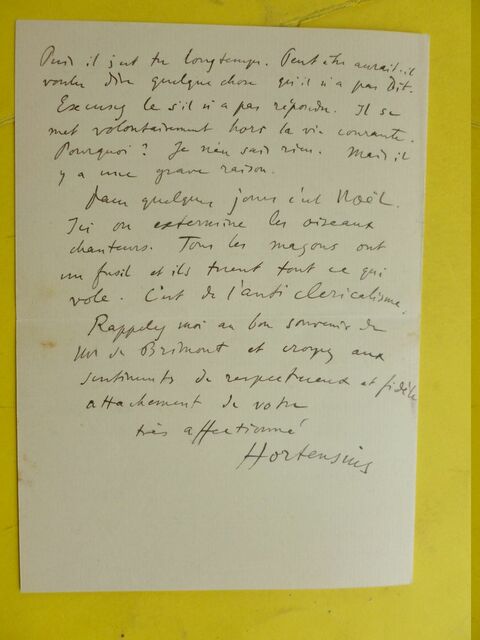 Puis il s'est tu longtemps. Peut être aurait-il
voulu dire quelque chose qu'il n'a pas dit.
Excusez le s'il n'a pas répondu. Il se
met volontairement hors la vie courante.
Pourquoi ? Je n'en sais rien. Mais il
y a une grave raison.
Dans quelques jours c'est Noël.
Ici on extermine les oiseaux
chanteurs. Tous les maçons ont
un fusil et ils tuent tout ce qui
vole. C'est de l'anti cléricalisme.
Rappelez moi au bon souvenir de
de Brimont et croyez aux
sentiments de respectueux et fidèle
attachement de votre
très affectionné
Hortensius